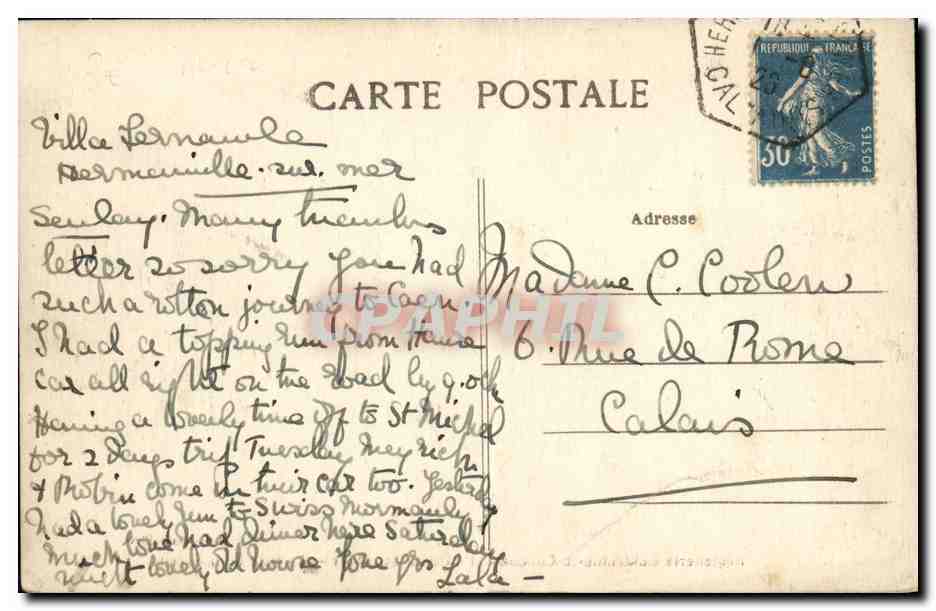 CARTE POSTALE
REPUBLIQUE FRANÇAISE
30
POSTES
CAL
Villa
Hermanville. sur. mer
Sunday. Many thanks
letter so sorry you had
such a rotten journey to Caen.
I had a topping run from Havre
car all right on the road by 9.
Having a lovely time off to St Michel
for 2 days trip Tuesday
& Robin come in their car too. Yesterday
had a lovely run to Swiss Normandy
much love had dinner here Saturday
night lovely old house Yrs
Lala -
Adresse
Madame C. Coolen
6. Rue de Rome
Calais
CPAPHIL